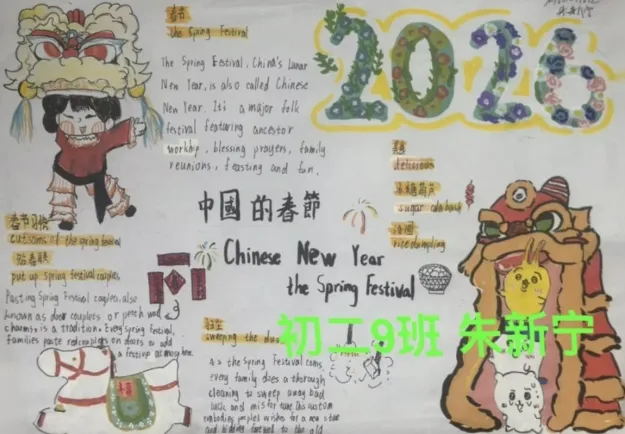 春节
the Spring Festival
The Spring Festival, China's Lunar
New Year, is also called Chinese
New Year. It's a major folk
festival featuring ancestor
worship, blessing prayers, family
reunions, feasting and fun.
2026
朱新宁
美食
delicious
冰糖葫芦
sugar
汤圆
rice dumpling
中國的春節
Chinese New Year
the Spring Festival
春节习俗
customs of the spring festival
贴春联
put up spring festival couplets,
Pasting Spring Festival couplets, also
known as door couplets or peach wood
charms is a tradition. Every Spring Festival,
families paste red couplets on doors to add
a festive atmosphere.
扫尘
sweeping the dust
As the Spring Festival comes,
every family does a thorough
cleaning to sweep away bad
luck and
embodies people's wishes for a new start
and bidding farewell to the old
初二9班 朱新宁